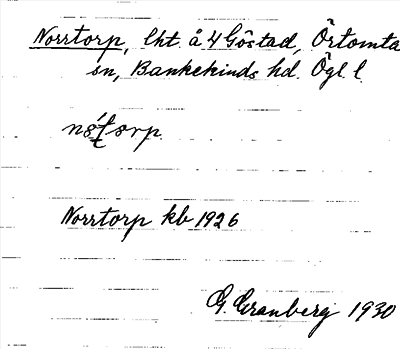 Norrtorp, lht. å 4 Göstad, Örtomta
sn, Bankekinds hd. Ögl. l.
Norrtorp kb 1926
G. Granberg 1930